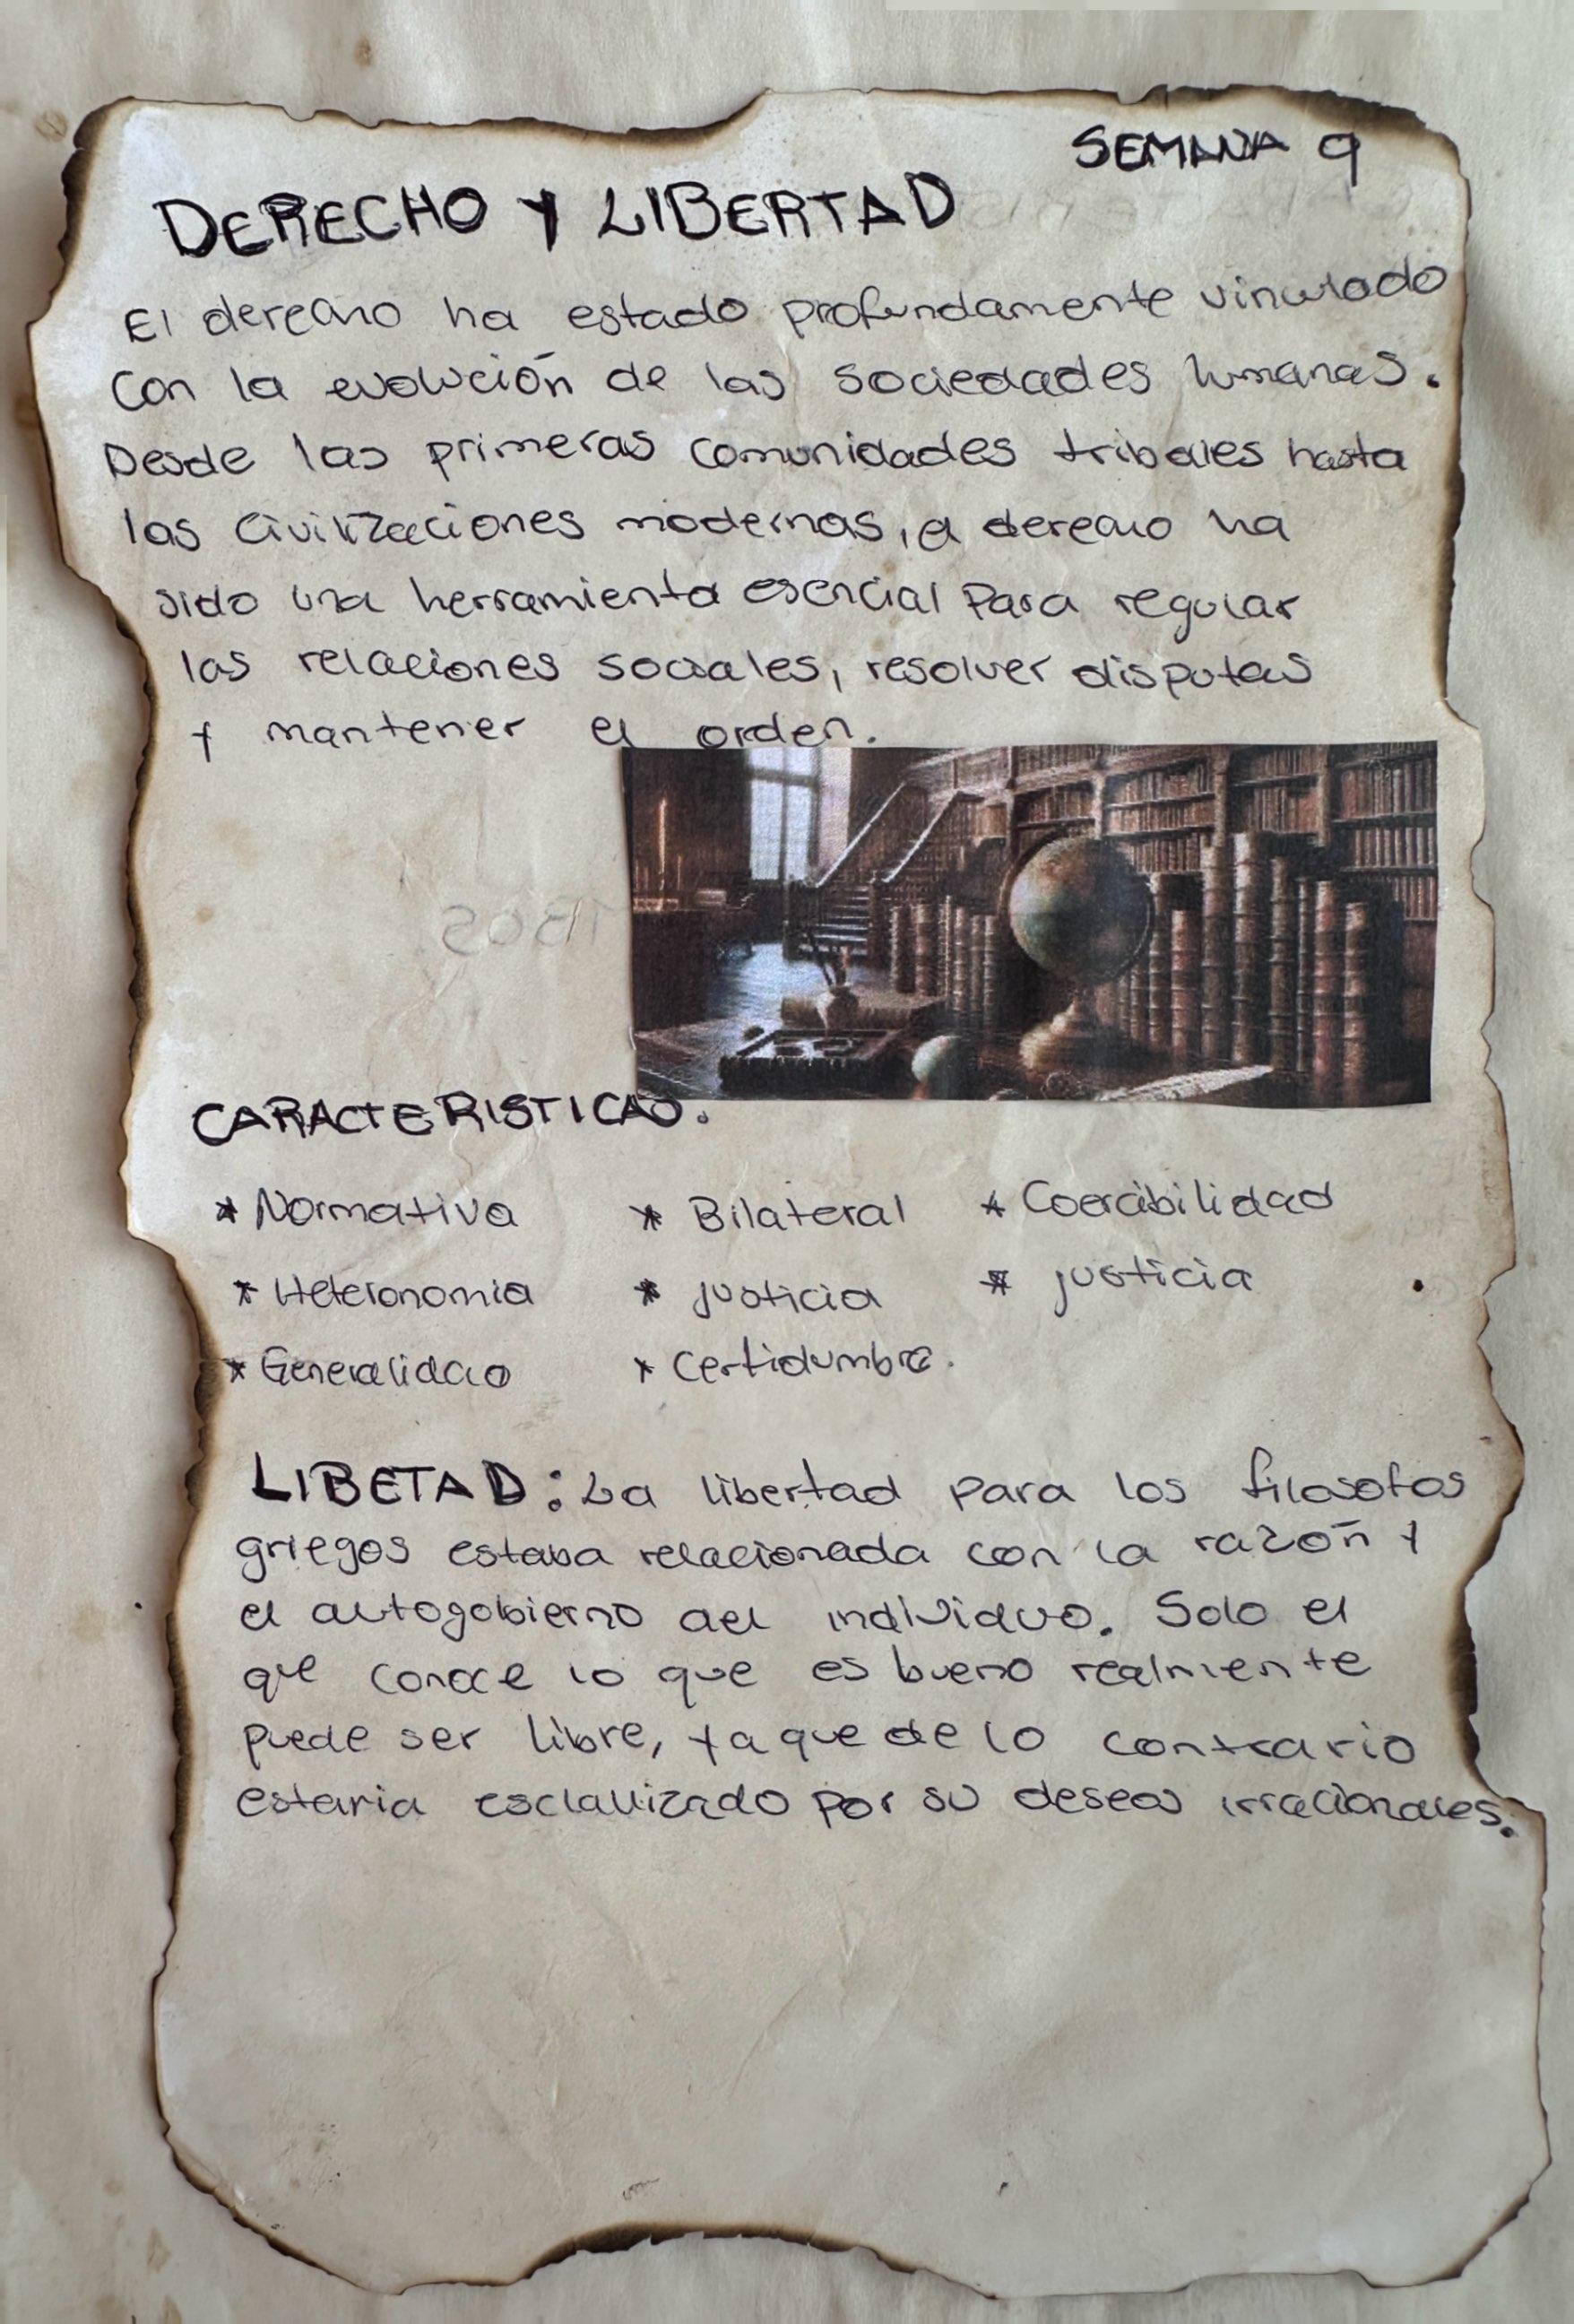 SEMANA 9
DERECHO Y LIBERTAD
El derecho ha estado profundamente vinculado
Con la evolución de las sociedades humanas.
Desde las primeras comunidades tribales hasta
las civilizaciones modernas, el derecho ha
sido una herramienta esencial para regular
las relaciones sociales, resolver disputas
y mantener el orden.
CARACTERISTICAS.
* Normativa * Bilateral * Coercibilidad
* Heteronomia * justicia * justicia
* Generalidad * Certidumbre.
LIBETAD: La libertad para los filosofos
griegos estaba relacionada con la razón y
el autogobierno del individuo. Solo el
que conoce lo que es bueno realmente
puede ser libre, ya que de lo contrario
estaria esclavizado por su deseos irracionales.